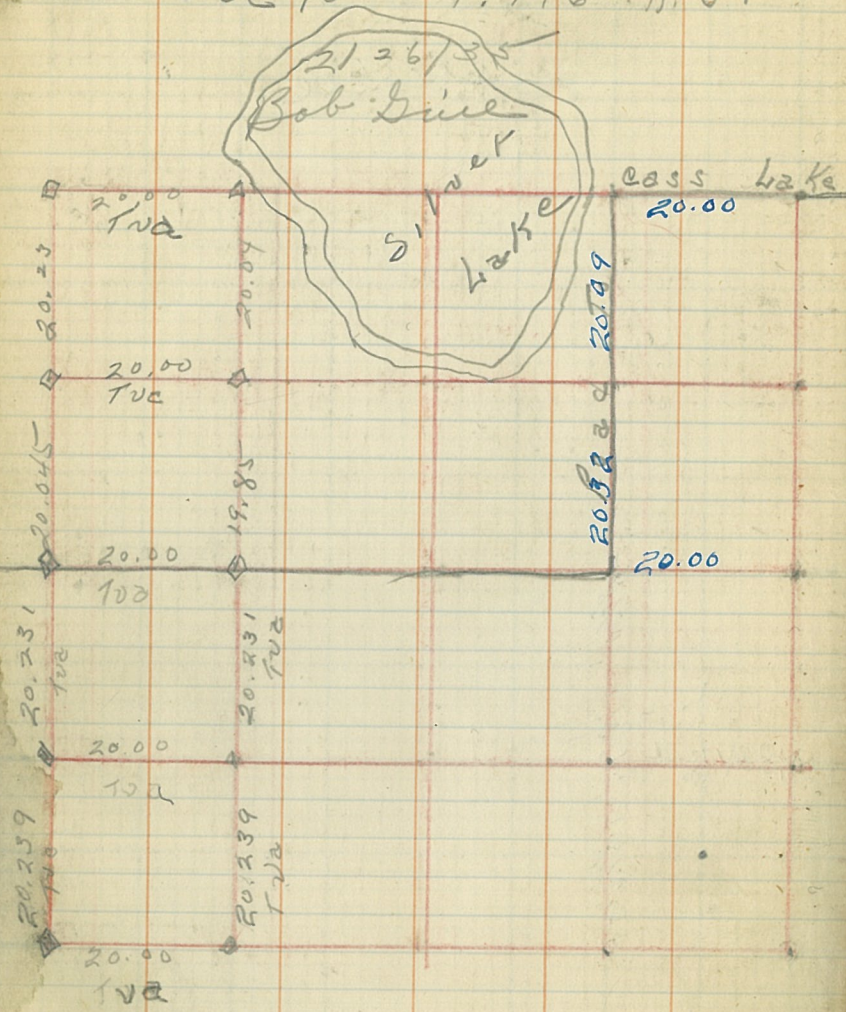 21 26 / 35
Bob
Silver
Lake
Cass Lake
20.00
Tva
20.00
20.23
20.09
20.09
20.00
Tva
Road
20.045
19.85
20.32
20.00
Tva
20.00
20.231
Tva
20.231
Tva
20.00
Tva
20.239
Tva
20.239
Tva
20.00
Tva